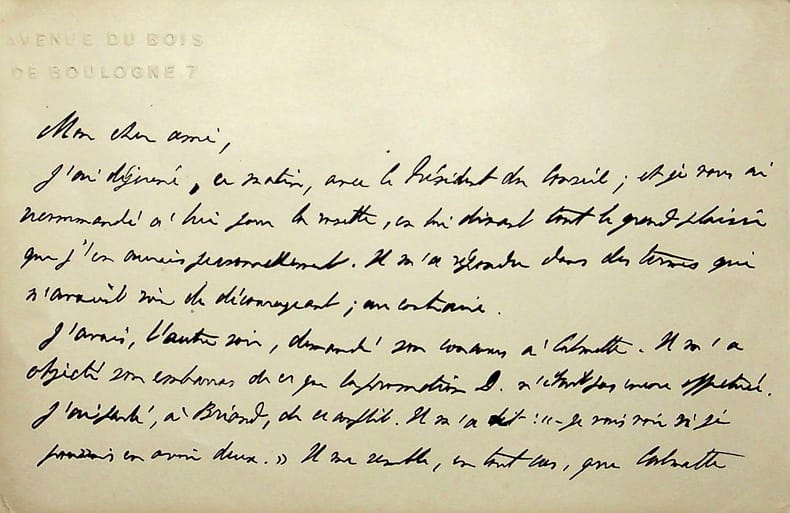 AVENUE DU BOIS
DE BOULOGNE 7
Mon cher ami,
J'ai déjeuné, ce matin, avec le Président du Conseil ; et je vous ai
recommandé à lui pour la rosette, en lui disant tout le grand plaisir
que j'en aurais personnellement. Il m'a répondu dans des termes qui
n'avaient rien de décourageant ; au contraire.
J'avais, l'autre soir, demandé son concours à Calmette. Il m'a
objecté son embarras de ce que la promotion D. n'était pas encore effectuée.
J'ai parlé, à Briand, de ce conflit. Il m'a dit : « – Je vais voir si je
pourrais en avoir deux. » Il me semble, en tout cas, que Calmette